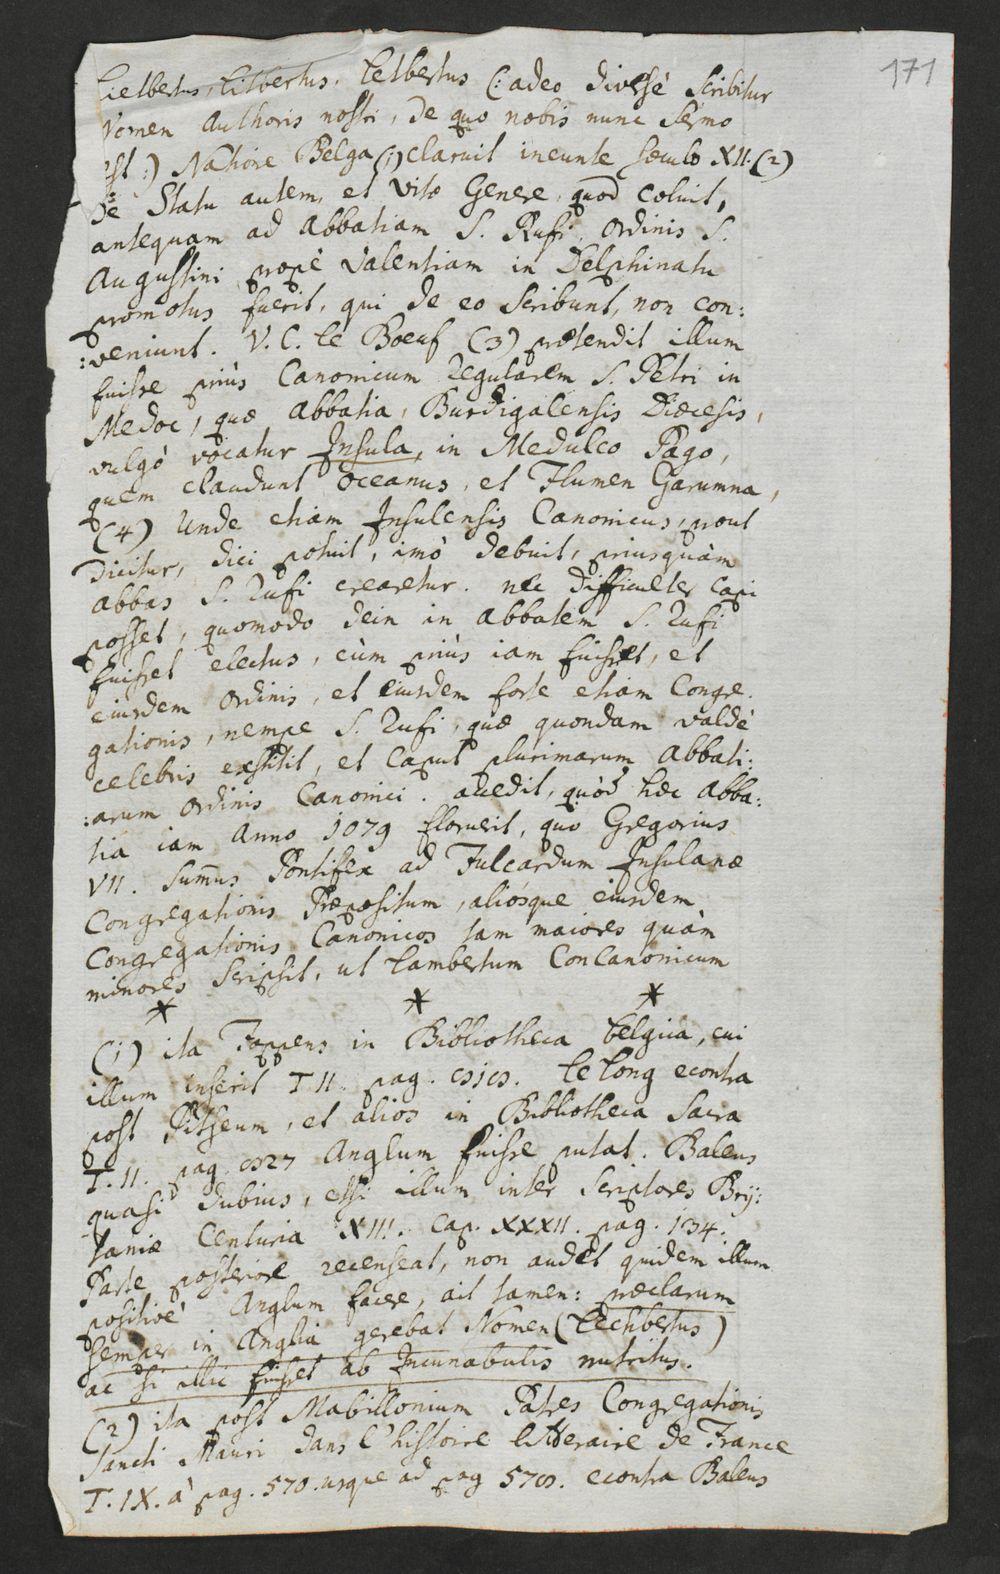 171
Lietbertus, Litbertus, Letbertus (: adeo diversè scribitur
Nomen Authoris nostri, de quo nobis nunc sermo
est :) Natione Belga (1) claruit ineunte sæculo XII. (2)
De Statu autem, et vitæ Genere, quod coluit,
antequam ad Abbatiam S. Rufi, Ordinis S.
Augustini propè Valentiam in Delphinatu
promotus fuerit, qui de eo scribunt, non con:
:veniunt. V. C. le Boeuf (3) prætendit illum
fuisse priùs Canonicum Regularem S. Petri in
Medoc, quæ Abbatia, Burdigalensis Dioecesis,
vulgò vocatur Insula, in Medulco Pago,
quem claudunt Oceanus, et Flumen Garumna,
(4) Unde etiam Insulensis Canonicus, prout
dicitur, dici potuit, imò debuit, priusquàm
Abbas S. Rufi crearetur. nec difficulter capi
posset, quomodo dein in Abbatem S. Rufi
fuisset electus, cùm priùs iam fuisset, et
eiusdem Ordinis, et eiusdem forte etiam Congre.
gationis, nempe S. Rufi, quæ quondam valdè
celebris extitit, et Caput plurimarum Abbati:
:arum Ordinis Canonici. accedit, quòd hæc Abba:
tia iam Anno 1079 floruerit, quo Gregorius
VII. Sum̄us Pontifex ad Fulcardum Insulanæ
Congregationis Præpositum, aliósque eiusdem
Congregationis Canonicos tam maiores quàm
minores scripsit, ut Lambertum ConCanonicum
* * *
(1) ita Foppens in Bibliotheca belgica, cui
illum inserit T II. pag. 818. le Long econtra
post Pitseum, et alios in Bibliotheca Sacra
T. II. pag. 827 Anglum fuisse putat. Baleus
quasi dubius, etsi illum inter Scriptores Bry:
taniæ Centuria XIII. Cap. XXXII. pag. 134.
Parte posteriore recenseat, non audet quidem illum
positivè Anglum facere, ait tamen: præclarum
semper in Anglia gerebat Nomen (Lechbertus)
ac si illic fuisset ab Incunabulis nutritus.
(2) ita post Mabillonium Patres Congregationis
Sancti Mauri dans l'histoire litteraire de France
T. IX. à pag. 570. usque ad pag 578. econtra Baleus